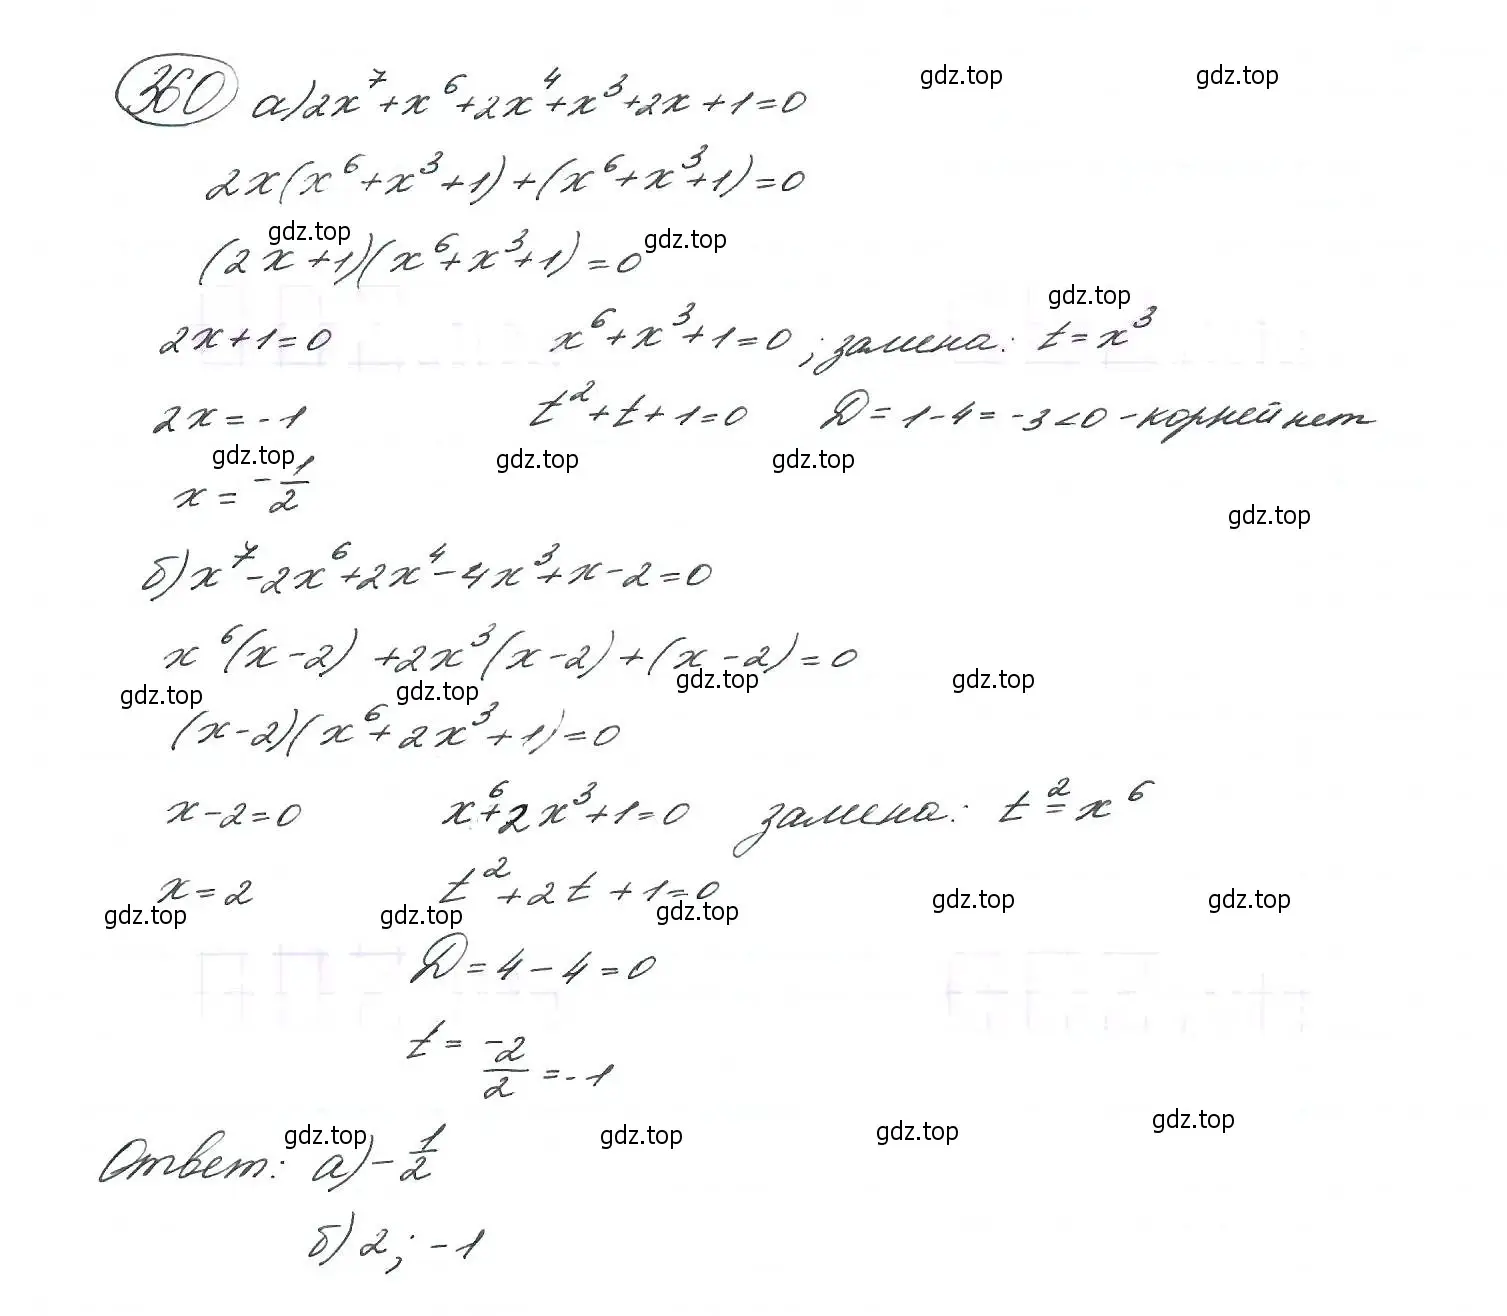 360 а) 2x⁷+x⁶+2x⁴+x³+2x+1=0 gdz.top gdz.top
2x(x⁶+x³+1)+(x⁶+x³+1)=0
gdz.top gdz.top
(2x+1)(x⁶+x³+1)=0
gdz.top
2x+1=0 x⁶+x³+1=0 ; замена: t=x³
2x=-1 t²+t+1=0 D=1-4=-3<0 - корней нет
gdz.top gdz.top gdz.top
x=-1/2
gdz.top
б) x⁷-2x⁶+2x⁴-4x³+x-2=0
x⁶(x-2)+2x³(x-2)+(x-2)=0
gdz.top gdz.top gdz.top gdz.top
(x-2)(x⁶+2x³+1)=0
x-2=0 x⁶+2x³+1=0 замена: t²=x⁶
x=2 t²+2t+1=0
gdz.top gdz.top gdz.top gdz.top gdz.top
D=4-4=0
t=-2/2=-1
gdz.top gdz.top gdz.top gdz.top
Ответ: а) -1/2
б) 2; -1